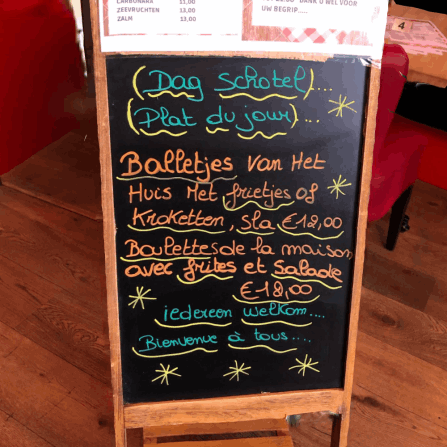 CARBONARA 11,00
ZEEVRUCHTEN 13,00
ZALM 13,00
DANK U WEL VOOR
UW BEGRIP....
4
(Dag schotel)...
(Plat du jour)...
Balletjes Van Het
Huis Met frietjes of
Kroketten, Sla €18,00
Boulettes de la maison
avec frites et Salade
€18,00
iedereen welkom....
Bienvenue à tous....